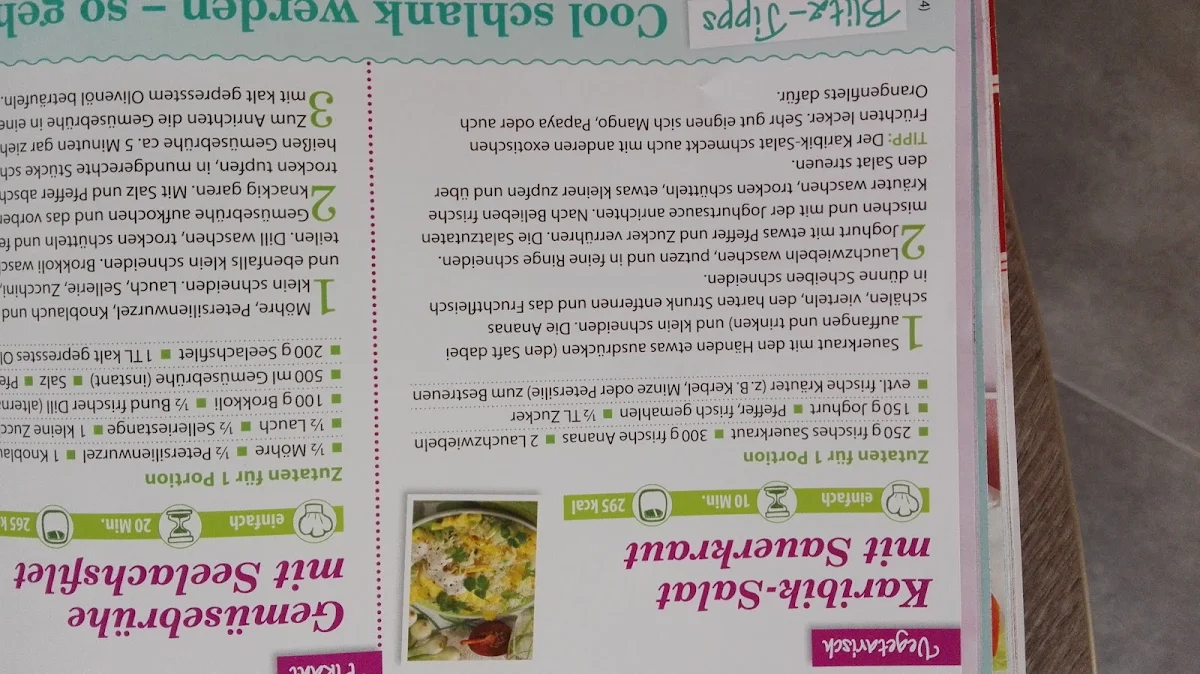 Vegetarisch
Karibik-Salat
mit Sauerkraut
einfach 10 Min. 295 kcal
Zutaten für 1 Portion
■ 250 g frisches Sauerkraut ■ 300 g frische Ananas ■ 2 Lauchzwiebeln
■ 150 g Joghurt ■ Pfeffer, frisch gemahlen ■ ½ TL Zucker
■ evtl. frische Kräuter (z. B. Kerbel, Minze oder Petersilie) zum Bestreuen
1 Sauerkraut mit den Händen etwas ausdrücken (den Saft dabei
auffangen und trinken) und klein schneiden. Die Ananas
schälen, vierteln, den harten Strunk entfernen und das Fruchtfleisch
in dünne Scheiben schneiden.
2 Lauchzwiebeln waschen, putzen und in feine Ringe schneiden.
Joghurt mit etwas Pfeffer und Zucker verrühren. Die Salatzutaten
mischen und mit der Joghurtsauce anrichten. Nach Belieben frische
Kräuter waschen, trocken schütteln, etwas kleiner zupfen und über
den Salat streuen.
TIPP: Der Karibik-Salat schmeckt auch mit anderen exotischen
Früchten lecker. Sehr gut eignen sich Mango, Papaya oder auch
Orangenfilets dafür.
Pikant
Gemüsebrühe
mit Seelachsfilet
einfach 20 Min. 265 k
Zutaten für 1 Portion
■ ½ Möhre ■ ½ Petersilienwurzel ■ 1 Knobla
■ ½ Lauch ■ ½ Selleriestange ■ 1 kleine Zucc
■ 100 g Brokkoli ■ ½ Bund frischer Dill (altern
■ 500 ml Gemüsebrühe (instant) ■ Salz ■ Pfe
■ 200 g Seelachsfilet ■ 1 TL kalt gepresstes Ol
1 Möhre, Petersilienwurzel, Knoblauch und
klein schneiden. Lauch, Sellerie, Zucchini,
und ebenfalls klein schneiden. Brokkoli wasc
teilen. Dill waschen, trocken schütteln und fe
2 Gemüsebrühe aufkochen und das vorber
knackig garen. Mit Salz und Pfeffer absch
trocken tupfen, in mundgerechte Stücke sch
heißen Gemüsebrühe ca. 5 Minuten gar zieh
3 Zum Anrichten die Gemüsebrühe in eine
mit kalt gepresstem Olivenöl beträufeln.
4)
Blitz-Tipps
Cool schlank werden – so geh